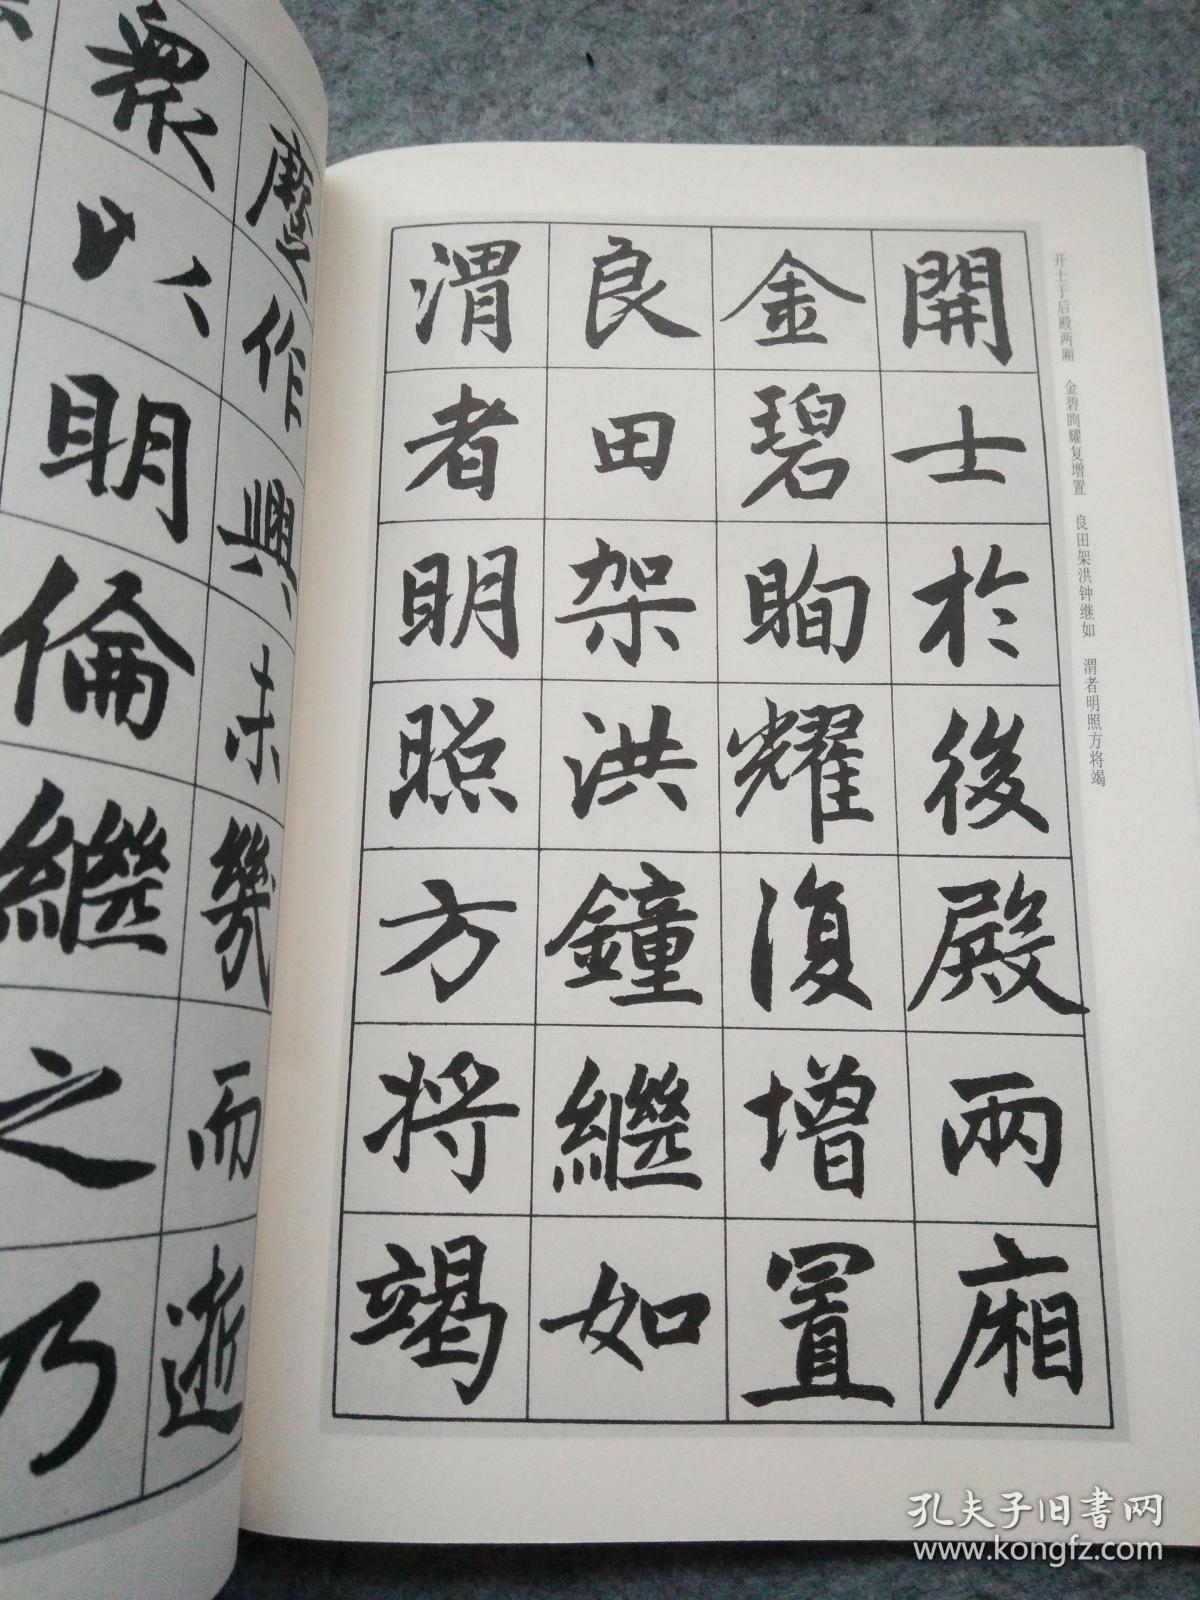 開士於後殿兩廂
金碧晌耀復增置
良田架洪鐘繼如
渭者明照方将竭
开士于后殿两厢 金碧晌耀复增置 良田架洪钟继如 渭者明照方将竭
塵作興未幾而逝
衆以明倫繼之乃
孔夫子旧书网
www.kongfz.com